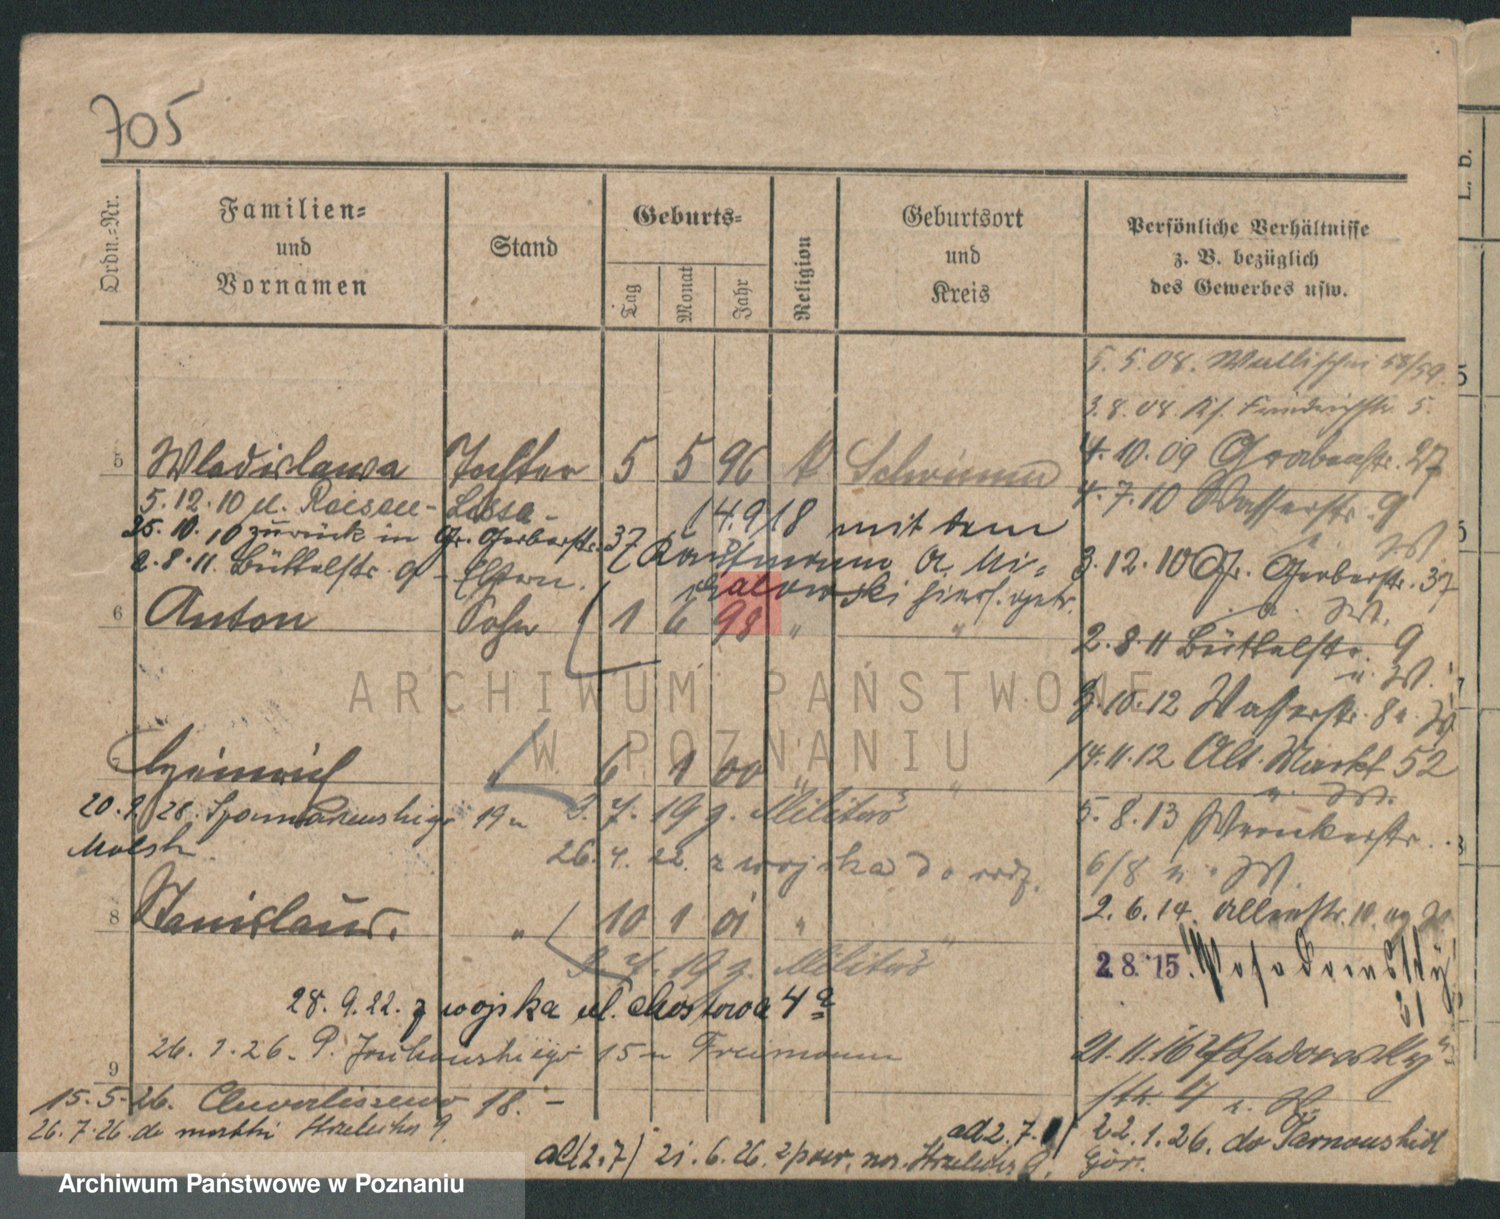 705
Ordn.-Nr.
Familien-
und
Vornamen
Stand
Geburts-
Tag
Monat
Jahr
Religion
Geburtsort
und
Kreis
Persönliche Verhältnisse
z. B. bezüglich
des Gewerbes usw.
L. b.
5. 5. 08. Wallischei 58/59.
3. 8. 08. Friedrichstr. 5.
5 Wladislawa Tochter 5 5 96 k Schrimm
4. 10. 09 Grabenstr. 27
4. 7. 10 Wasserstr. 9
5. 12. 10 n. Reisen - Lissa -
25. 10. 10 zurück in Gr. Gerberstr. 37
2. 8. 11 Büttelstr. 9 - Eltern.
14. 9. 18 mit dem
Kaufmann A. Mi-
chalowski hier. getr.
3. 12. 10 Gr. Gerberstr. 37
u. W.
6 Anton Sohn 1 6 98 " "
2. 8. 11 Büttelstr. 9
u. W.
3. 10. 12 Wasserstr. 8a. W
7 Heinrich " 6 1 00 " "
14. 11. 12 Alt. Markt 52
u. W.
2. 7. 19 z. Militär
20. 2. 28. 19
26. 4. 22. z wojska do rodz.
5. 8. 13 Wronkerstr.
6/8 u. W.
8 Stanislaus. " 10 1 01 " "
2. 6. 14. Allerstr. 10
9. 7. 19 z. Militär
2. 8. 15 Posadowsky
28. 9. 22. z wojska ul. Mostowa 4a
26. 1. 26. 15 Freimann
21. 11. 16 Posadowsky
str. 4 u. W.
9
15. 5. 26. Chwaliszewo 18. -
26. 7. 26 do matki Strzelecka 9.
ad 2. 7. 22. 1. 26. do Tarnowskich
Gór.
ad 2. 7 21. 6. 26. z powr. Strzelecka 9.
ARCHIWUM PAŃSTWOWE
W POZNANIU
Archiwum Państwowe w Poznaniu